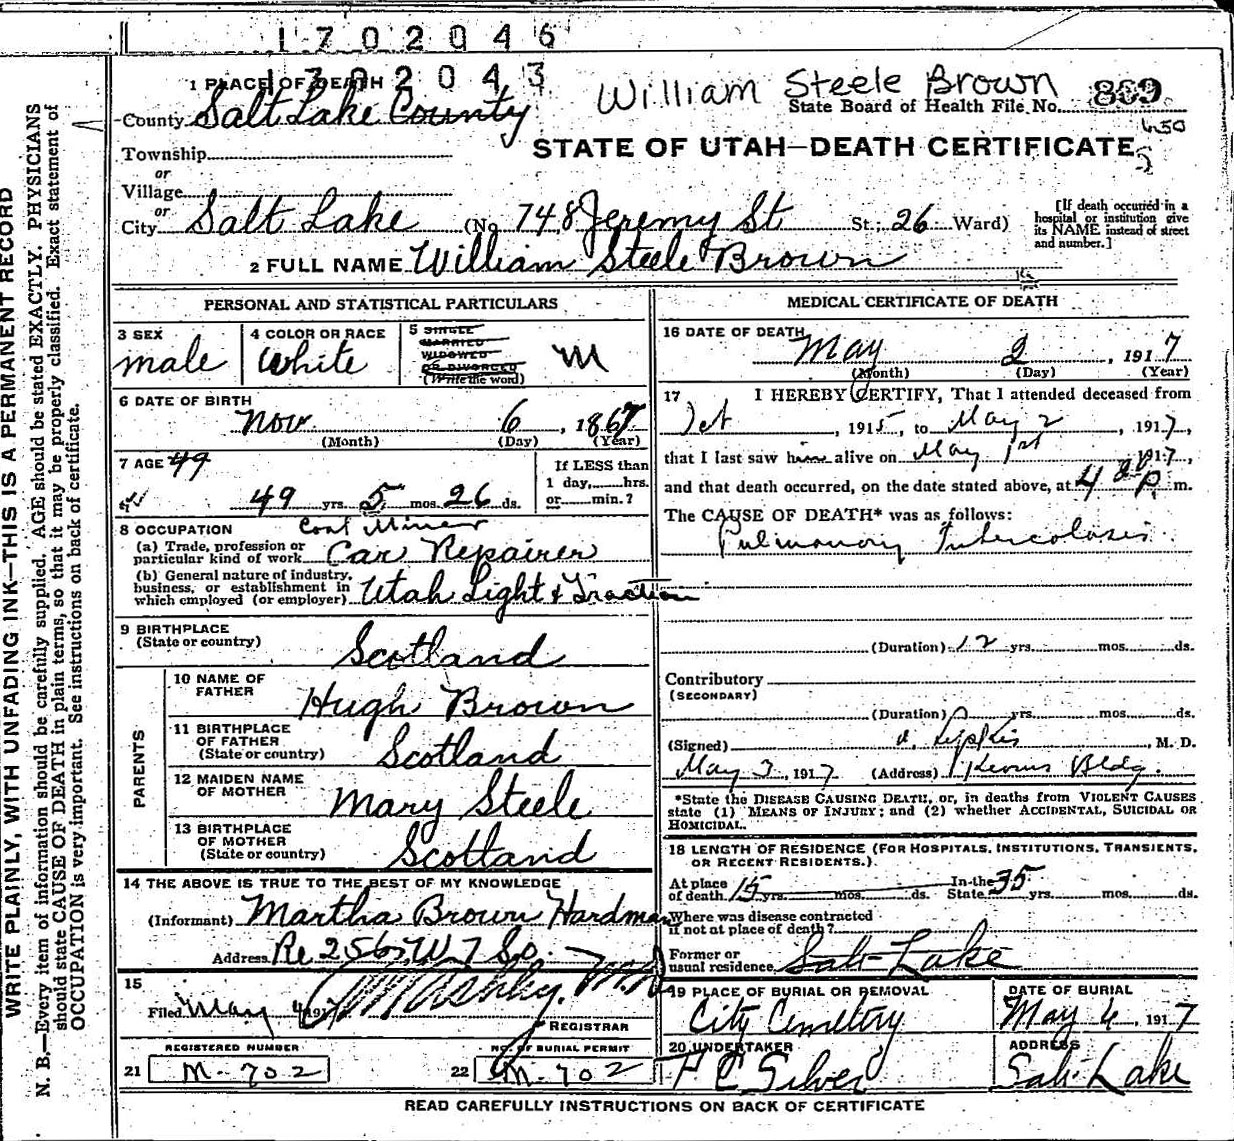 1702046
1702043
William Steele Brown
1 PLACE OF DEATH
State Board of Health File No. 869
County Salt Lake County
450
STATE OF UTAH—DEATH CERTIFICATE
Township
or
Village
or
City Salt Lake (No 748 Jeremy St St.; 26 Ward)
[If death occurred in a hospital or institution give its NAME instead of street and number.]
2 FULL NAME William Steele Brown
PERSONAL AND STATISTICAL PARTICULARS
3 SEX male
4 COLOR OR RACE White
5 SINGLE MARRIED WIDOWED OR DIVORCED (Write the word) M
6 DATE OF BIRTH
Nov. 6, 1867
(Month) (Day) (Year)
7 AGE 49
49 yrs. 5 mos. 26 ds.
If LESS than
1 day, hrs.
or min.?
8 OCCUPATION Coal Miner
(a) Trade, profession or
particular kind of work Car Repairer
(b) General nature of industry,
business, or establishment in
which employed (or employer) Utah Light & Traction
9 BIRTHPLACE
(State or country) Scotland
PARENTS
10 NAME OF
FATHER Hugh Brown
11 BIRTHPLACE
OF FATHER
(State or country) Scotland
12 MAIDEN NAME
OF MOTHER Mary Steele
13 BIRTHPLACE
OF MOTHER
(State or country) Scotland
14 THE ABOVE IS TRUE TO THE BEST OF MY KNOWLEDGE
(Informant) Martha Brown Hardman
Address Re 256 W 7 So.
15
Filed May 4 191 M.D.
REGISTRAR
REGISTERED NUMBER
21 M-702
NO. OF BURIAL PERMIT
22 M-702
MEDICAL CERTIFICATE OF DEATH
16 DATE OF DEATH
May 2, 1917
(Month) (Day) (Year)
17 I HEREBY CERTIFY, That I attended deceased from
, 1915, to May 2, 1917,
that I last saw him alive on May 1st 1917,
and that death occurred, on the date stated above, at 4 P. m.
The CAUSE OF DEATH* was as follows:
Pulmonary Tuberculosis
(Duration) 12 yrs. mos. ds.
Contributory
(SECONDARY)
(Duration) yrs. mos. ds.
(Signed) , M. D.
May 3, 1917 (Address) Kearns Bldg.
*State the DISEASE CAUSING DEATH, or, in deaths from VIOLENT CAUSES
state (1) MEANS OF INJURY; and (2) whether ACCIDENTAL, SUICIDAL OR
HOMICIDAL.
18 LENGTH OF RESIDENCE (FOR HOSPITALS, INSTITUTIONS, TRANSIENTS,
OR RECENT RESIDENTS.)
At place of death 15 yrs. mos. ds. In the State 35 yrs. mos. ds.
Where was disease contracted
if not at place of death?
Former or
usual residence Salt Lake
19 PLACE OF BURIAL OR REMOVAL
City Cemetery
DATE OF BURIAL
May 6, 1917
20 UNDERTAKER
ADDRESS
Silver
Salt Lake
READ CAREFULLY INSTRUCTIONS ON BACK OF CERTIFICATE
WRITE PLAINLY, WITH UNFADING INK—THIS IS A PERMANENT RECORD
N. B.—Every item of information should be carefully supplied. AGE should be stated EXACTLY. PHYSICIANS
should state CAUSE OF DEATH in plain terms, so that it may be properly classified. Exact statement of
OCCUPATION is very important. See instructions on back of certificate.